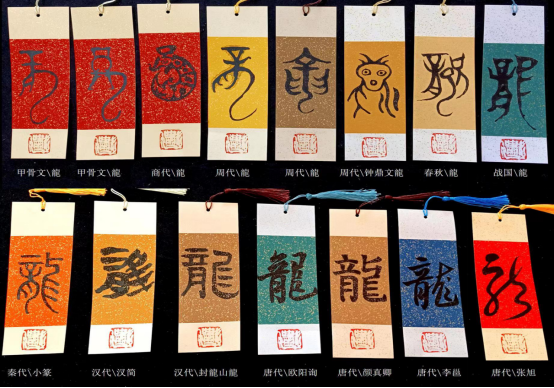 甲骨文\龍 甲骨文\龍 商代\龍 周代\龍 周代\龍 周代\钟鼎文龍 春秋\龍 战国\龍
龍 龍 龍 龍 龍 龍 龍
秦代\小篆 汉代\汉简 汉代\封龍山龍 唐代\欧阳询 唐代\颜真卿 唐代\李邕 唐代\张旭